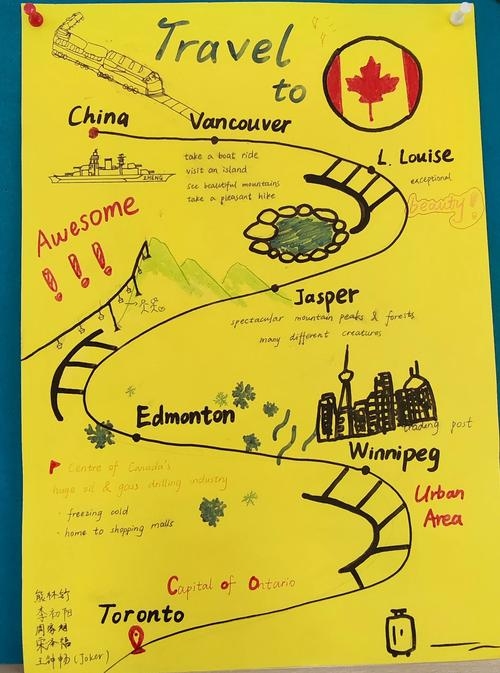 Travel
to
China
Vancouver
take a boat ride
visit an island
see beautiful mountains
take a pleasant hike
L. Louise
exceptional
beauty!
Awesome
!!!
Jasper
spectacular mountain peaks & forests
many different creatures
Edmonton
Centre of Canada's
huge oil & gass drilling industry
· freezing cold
· home to shopping malls
trading post
Winnipeg
Urban
Area
Capital of Ontario
Toronto
王钟畅 (Joker)